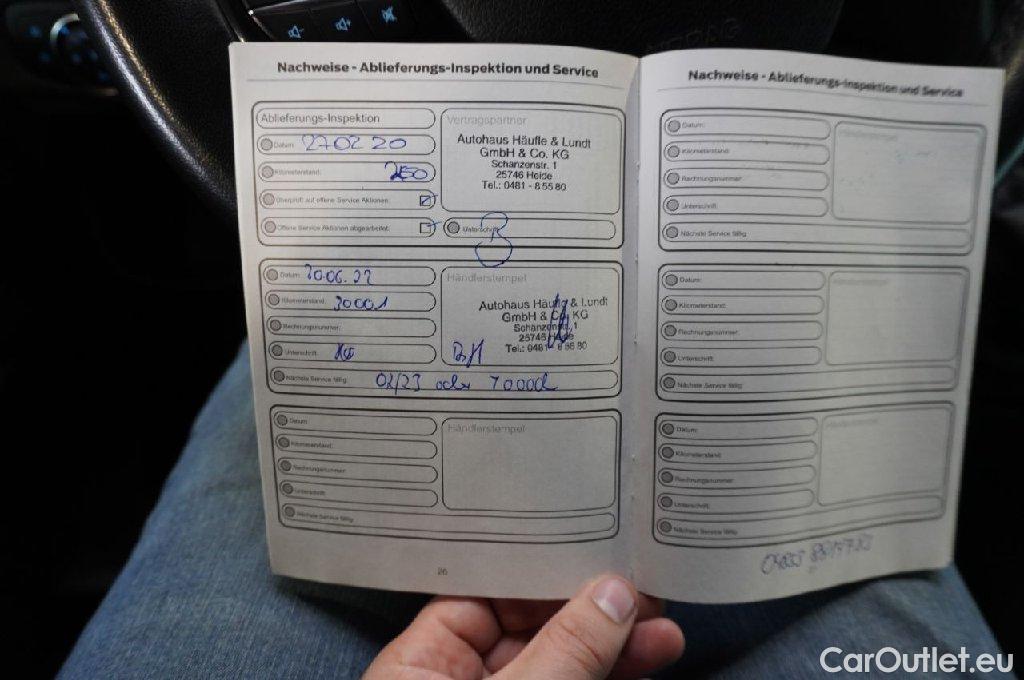 Nachweise - Ablieferungs-Inspektion und Service
Ablieferungs-Inspektion
Datum: 27 02 20
Kilometerstand: 250
Überprüft auf offene Service Aktionen:
Offene Service Aktionen abgearbeitet:
Vertragspartner
Autohaus Häufle & Lundt
GmbH & Co. KG
Schanzenstr. 1
25746 Heide
Tel.: 0481 - 8 55 80
Unterschrift:
Datum:
Kilometerstand: 30001
Rechnungsnummer:
Unterschrift:
Nächste Service fällig: 02/23 oder
Händlerstempel
Autohaus Häufle & Lundt
GmbH & Co. KG
Schanzenstr. 1
25746 Heide
Tel.: 0481 - 8 55 80
Datum:
Kilometerstand:
Rechnungsnummer:
Unterschrift:
Nächste Service fällig:
Händlerstempel
26
Nachweise - Ablieferungs-Inspektion und Service
Datum:
Kilometerstand:
Rechnungsnummer:
Unterschrift:
Nächste Service fällig:
Händlerstempel
Datum:
Kilometerstand:
Rechnungsnummer:
Unterschrift:
Nächste Service fällig:
Händlerstempel
Datum:
Kilometerstand:
Rechnungsnummer:
Unterschrift:
Nächste Service fällig:
Händlerstempel
CarOutlet.eu